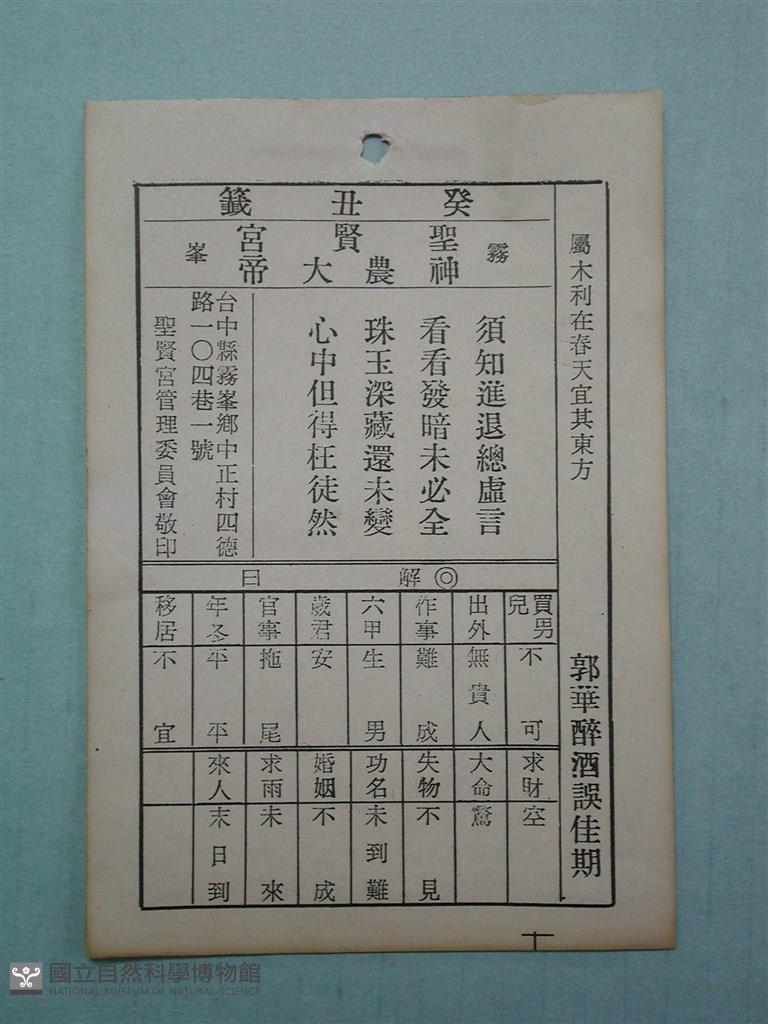 癸丑籤
霧峯
聖賢宮
神農大帝
屬木利在春天宜其東方
郭華醉酒誤佳期
須知進退總虛言
看看發暗未必全
珠玉深藏還未變
心中但得枉徒然
台中縣霧峯鄉中正村四德
路一〇四巷一號
聖賢宮管理委員會敬印
◎解曰
買男兒 不可
出外 無貴人
作事 難成
六甲 生男
歲君 安
官事 拖尾
年冬 平平
移居 不宜
求財 空
大命 驚
失物 不見
功名 未到難
婚姻 不成
求雨 未來
來人 末日到
十
國立自然科學博物館
NATIONAL MUSEUM OF NATURAL SCIENCE